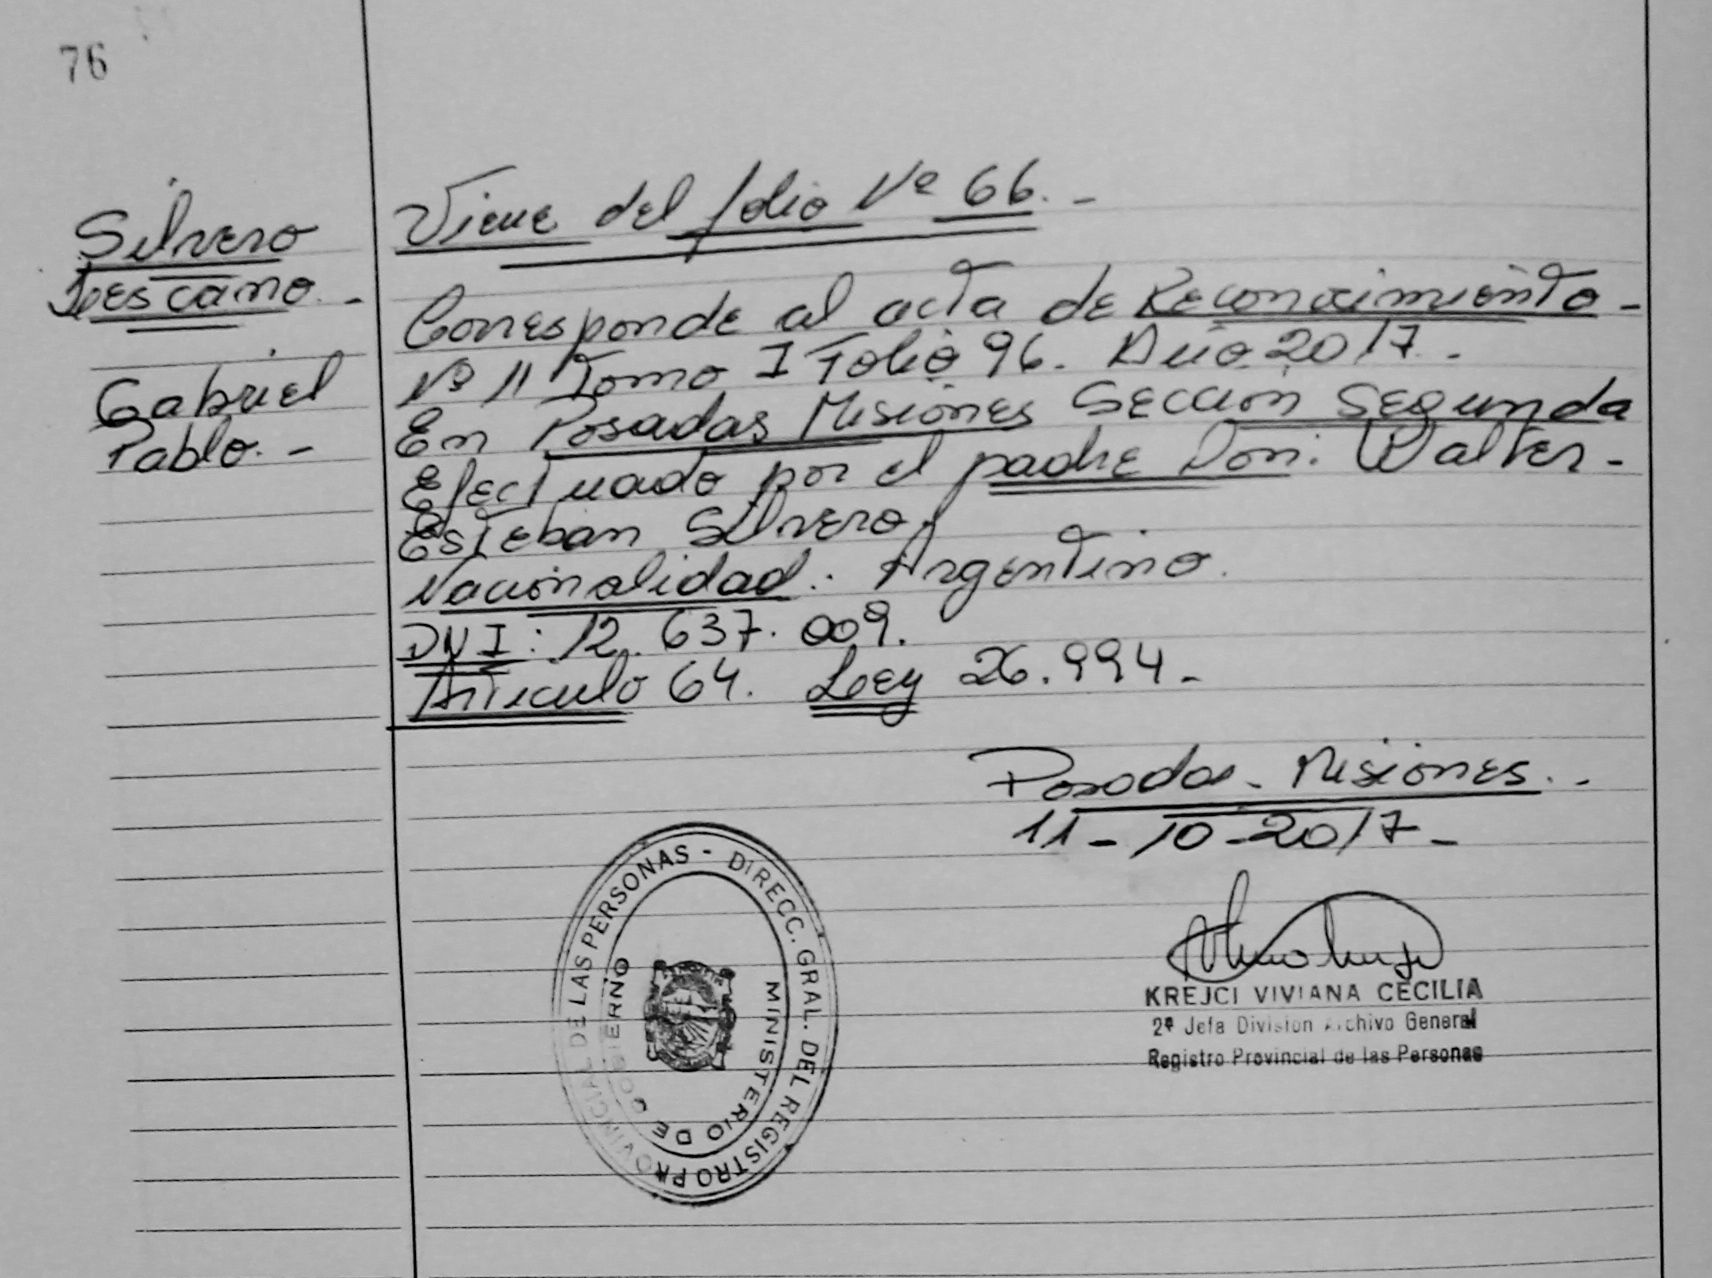 76
Silvero
Lescano. -
Gabriel
Pablo. -
Viene del folio Nº 66. -
Corresponde al acta de Reconocimiento -
Nº 11 Tomo I Folio 96. Año 2017. -
En Posadas Misiones Sección Segunda
Efectuado por el padre Don: Walter -
Esteban Silvero.
Nacionalidad: Argentino.
DNI: 12.637.009.
Artículo 64. Ley 26.994 -
Posadas - Misiones. -
11 - 10 - 2017 -
DIRECC. GRAL. DEL REGISTRO PROVINCIAL DE LAS PERSONAS -
MINISTERIO DE GOBIERNO
KREJCI VIVIANA CECILIA
2ª Jefa Division Archivo General
Registro Provincial de las Personas